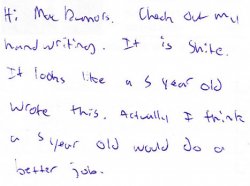 Hi Mac Rumors. Check out my
handwriting. It is shite.
It looks like a 5 year old
wrote this. Actually I think
a 5 year old would do a
better job.